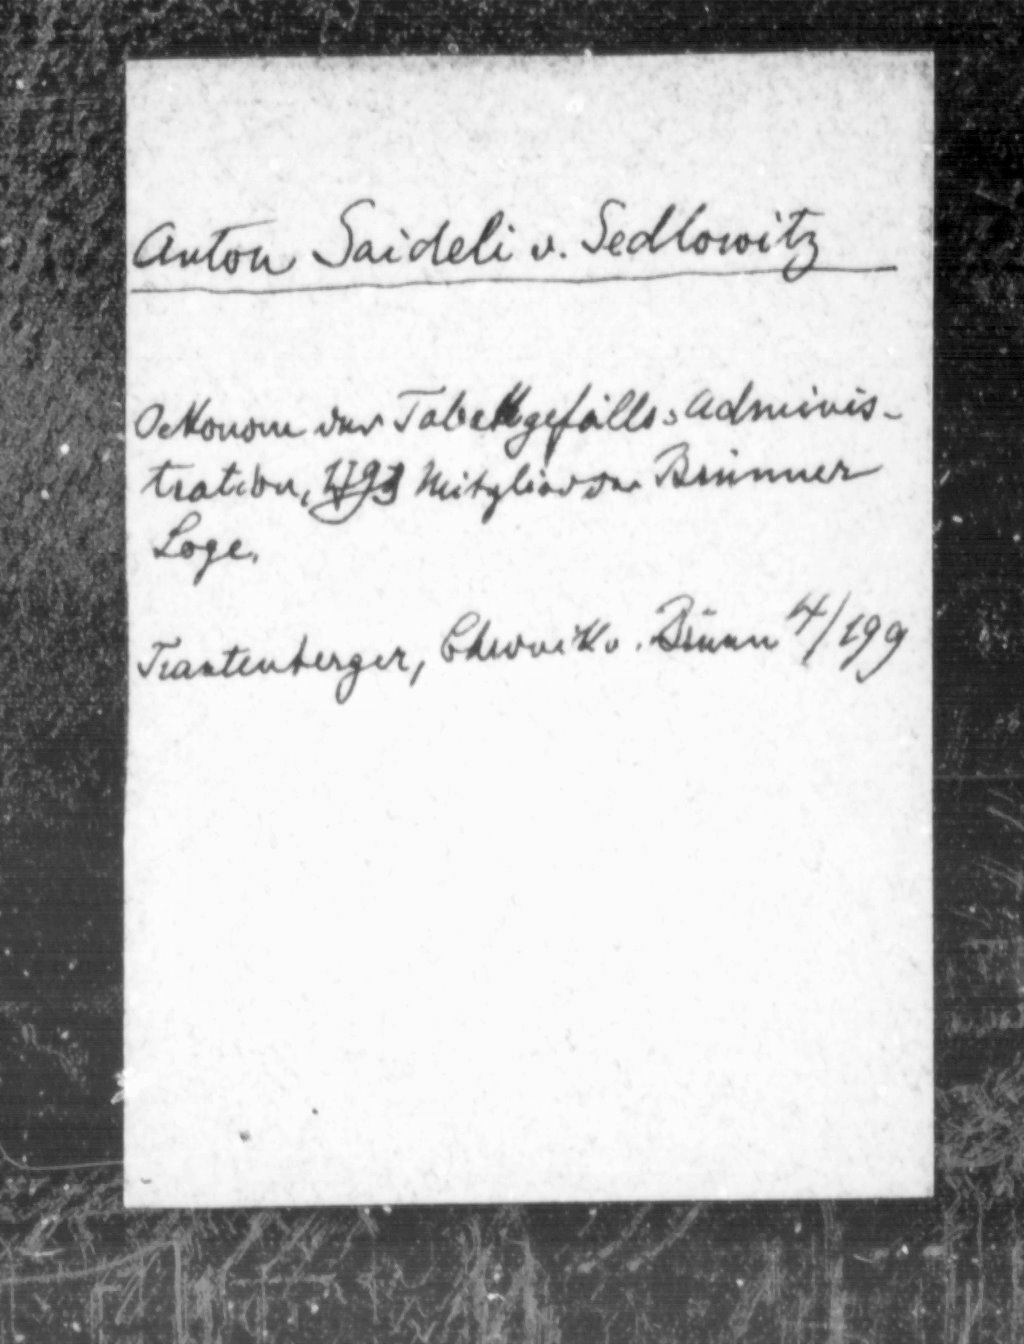 Anton Saideli v. Sedlowitz
Oekonom der Tabakgefälls-Adminis-
tration, 1793 Mitglied der Brünner
Loge.
Trautenberger, Chronik v. Brünn 4/199